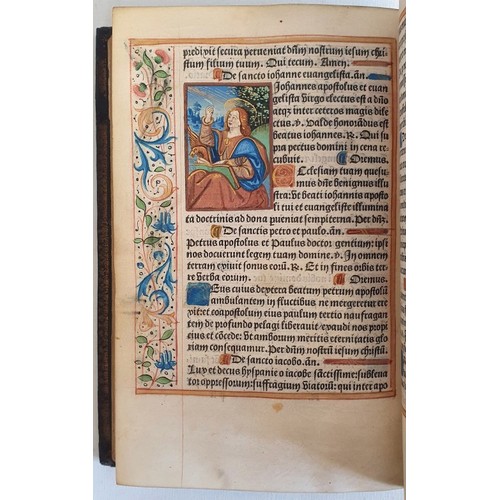 predi.vie secura perueniat ad dn̄m nostrum iesum chri-
stum filium tuum. Qui tecum. Amen.
De sancto iohanne euangelista. an̄.
Iohannes apostolus et euan
gelista virgo electus est a dn̄o
atqz inter ceteros magis dile
ctus. v. Valde honorādus est
beatus iohannes. R. Qui su
pra pectus domini in cena re
cubuit. Oremus.
Ecclesiam tuam quesu-
mus dn̄e benignus illu
stra: vt beati iohannis aposto
li tui et euangeliste illumina
ta doctrinis ad dona pueniat sempiterna. Per dn̄z.
De sanctis petro et paulo. an̄.
Petrus apostolus et Paulus doctor gentium: ipsi
nos docuerunt legem tuam domine. v. In omnem
terram exiuit sonus eorū. R. Et in fines orbis ter-
re verba eorum. Oremus.
Deus cuius dextera beatum petrum apostolū
ambulantem in fluctibus ne mergeretur ere
xit: et coapostolum eius paulum tertio naufragantem
de profundo pelagi liberauit: exaudi nos propi
cius et cōcede: vt amborum meritis eternitatis glo
riam consequamur. Per dn̄m nostrū iesum christū.
De sancto iacobo. an̄.
Lux et decus hyspanie o iacobe sāctissime: subleua
tor oppressorum: suffragium viatorū: qui inter apo